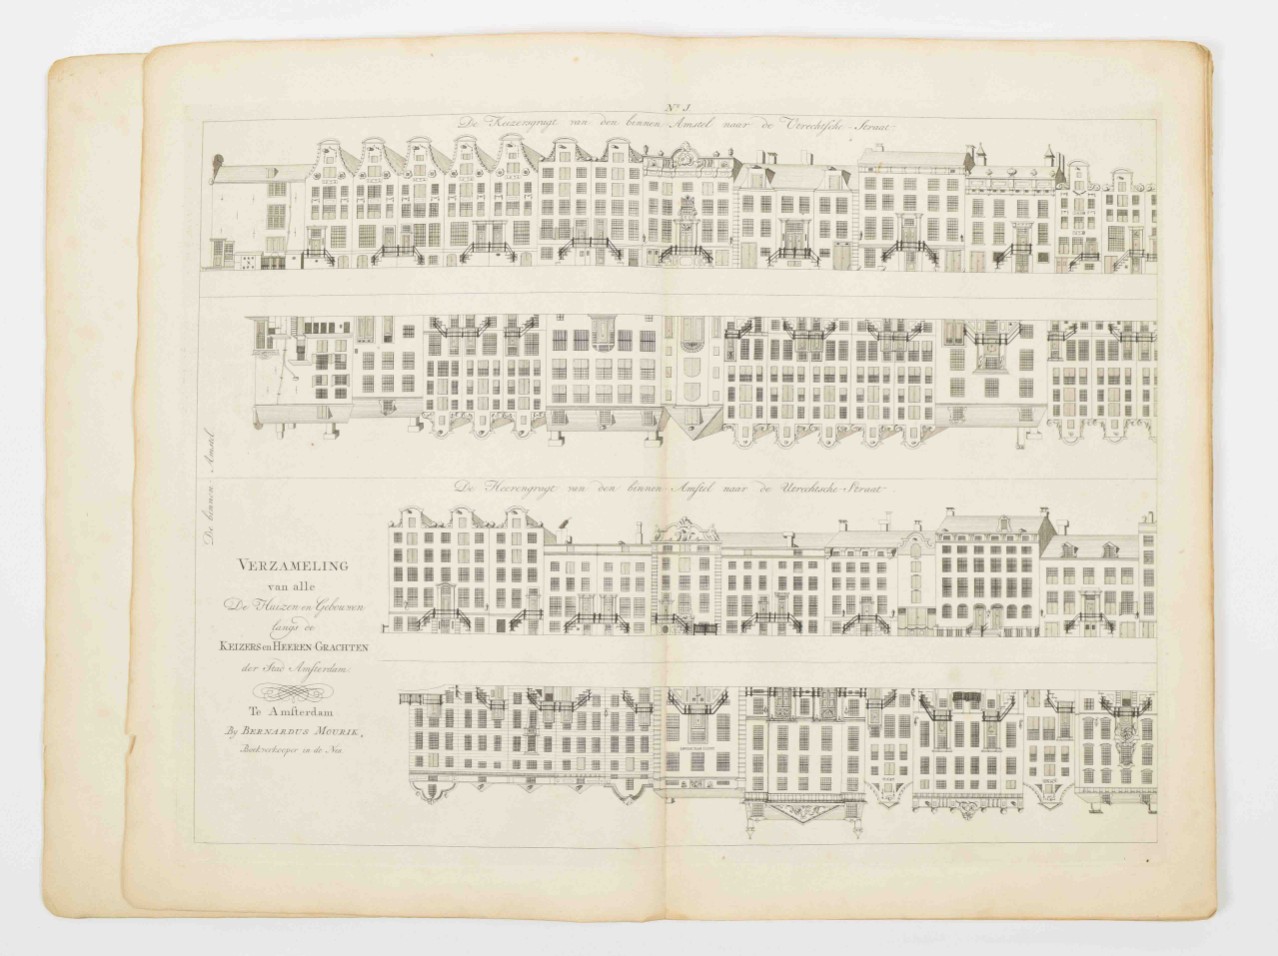 No. 1
De Keizersgragt van den binnen Amstel naar de Utrechtsche Straat
De binnen Amstel
De Heerengragt van den binnen Amstel naar de Utrechtsche Straat
VERZAMELING
van alle
De Huizen en Gebouwen
langs de
KEIZERS en HEEREN-GRACHTEN
der Stad Amsterdam.
Te Amsterdam
By BERNARDUS MOURIK,
Boekverkooper in de Nes